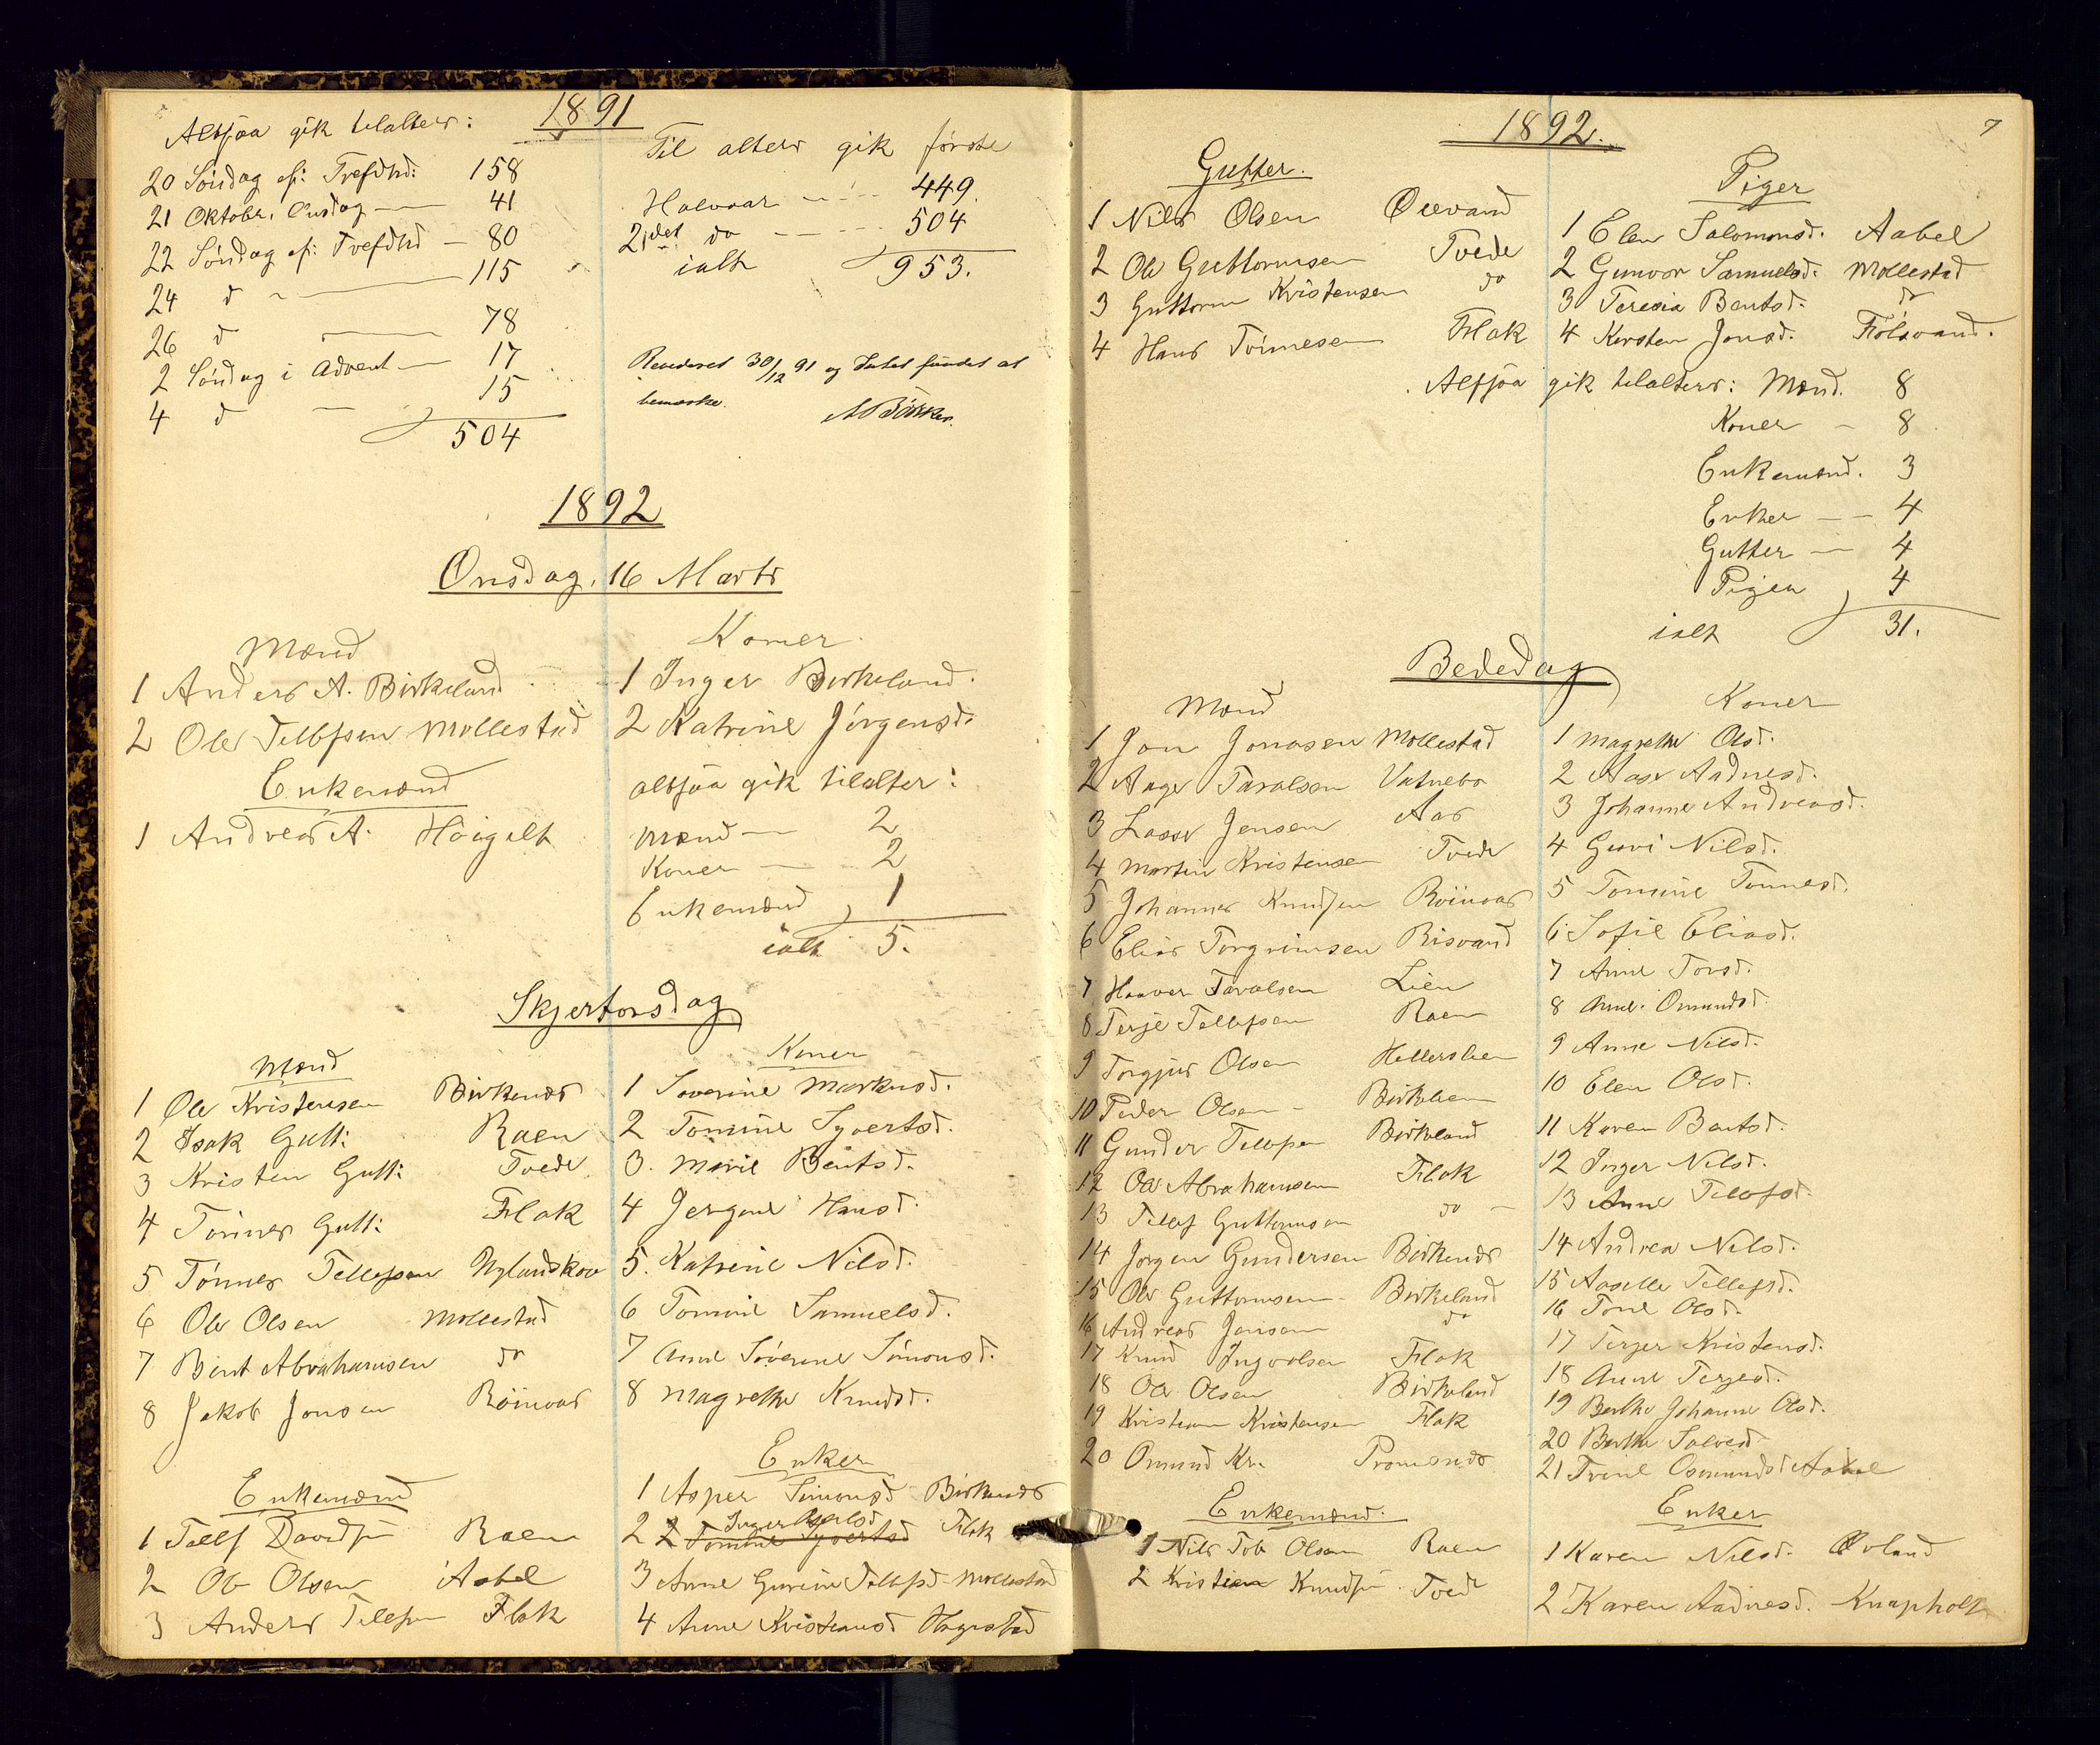 1891
Altsaa gik tilalters:
20 Söndag ef: Trefdhd: 158
21 Oktober, Onsdag — 41
22 Söndag ef: Trefdhd — 80
24 d — 115
26 d — 78
2 Söndag i Advent — 17
4 d — 15
504
Til alters gik første
Halvaar — 449.
2det do — 504
ialt 953.
Revideret 30/12 91 og Intet fundet at
bemærke.
1892
Onsdag, 16 Marts
Mænd
1 Anders A. Birkeland
2 Ole Tellefsen Mollestad
Enkemænd
1 Andreas A. Høigilt
Koner
1 Inger Birkeland.
2 Katrine Jørgensd.
altsaa gik tilalter:
Mænd — 2
Koner — 2
Enkemænd 1
ialt 5.
Skjertorsdag
Mænd
1 Ole Kristensen Birkenes
2 Isak Gutt: Raen
3 Kristen Gutt: Tvede
4 Tønnes Gutt: Flak
5 Tønnes Tellefsen Uglandskov
6 Ole Olsen Mollestad
7 Bent Abrahamsen do
8 Jakob Jonsen Röinaas
Koner
1 Severine Markusd.
2 Tomine Syvertsd.
3. Marie Bentsd.
4 Jørgine Hansd.
5. Katrine Nilsd.
6 Tomine Samuelsd.
7 Anne Söverine Simonsd.
8 Magrethe Knudsd.
Enkemænd
1 Tellf Davidsen Raen
2 Ole Olsen Aabel
3 Anders Tellefsen Flak
Enker
1 Asper Simonsd Birkenes
Inger
2 2 Tomine Syvertsd Flak
3 Anne Gurine Tellefsd. Mollestad
4 Anne Kristiansd Hægestad
1892.
7
Gutter.
1 Nils Olsen Oevand
2 Ole Guttormsen Tvede
3 Guttorm Kristensen do
4 Hans Tönnesen Flak
Piger
1 Elen Salomonsd. Aabel
2 Gunvor Samuelsd. Mollestad
3 Teresia Bentsd. do
4 Kirsten Jonsd. Fölsvand.
Altsaa gik tilalters: Mænd. 8
Koner — 8
Enkemænd. 3
Enker — 4
Gutter — 4
Piger 4
ialt 31.
Bededag
Mænd
1 Jon Jonasen Mollestad
2 Aage Taralsen Vatnebo
3 Lasse Jensen Aas
4 Martin Kristensen Tvede
5 Johannes Knudsen Röinaas
6 Elias Torgrimsen Risvand
7 Haaver Taralsen Lien
8 Terje Tellefsen Raen
9 Torgjus Olsen Hellerslien
10 Peder Olsen — Birkelien
11 Gunder Tellefsen Birkeland
12 Ole Abrahamsen Flak
13 Tellef Guttormsen do
14 Jørgen Gundersen Birkenes
15 Ole Guttormsen — Birkeland
16 Andreas Jensen do
17 Knud Ingvalsen Flak
18 Ole Olsen Birkeland
19 Kristian Kristensen Flak
20 Omund Kr. Promenes
Koner
1 Magrethe Olsd.
2 Aase Aadnesd.
3 Johanne Andreasd.
4 Gurvi Nilsd.
5 Tomine Tønnesd.
6 Sofie Eliasd.
7 Anne Torsd.
8 Anne Omundsd.
9 Anne Nilsd.
10 Elen Olsd.
11 Karen Bentsd.
12 Inger Nilsd.
13 Anne Tellefsd.
14 Andrea Nilsd.
15 Aaselle Tellefsd.
16 Tone Olsd.
17 Terjer Kristensd.
18 Anne Terjesd.
19 Berthe Johanne Olsd.
20 Berthe Salvesd
21 Trine Osmundsd Aabel
Enkemænd.
1 Nils Tob Olsen Raen
2 Kristian Knudsen Tvede
Enker
1 Karen Nilsd. Øvland
2 Karen Aadnesd. Knapholt